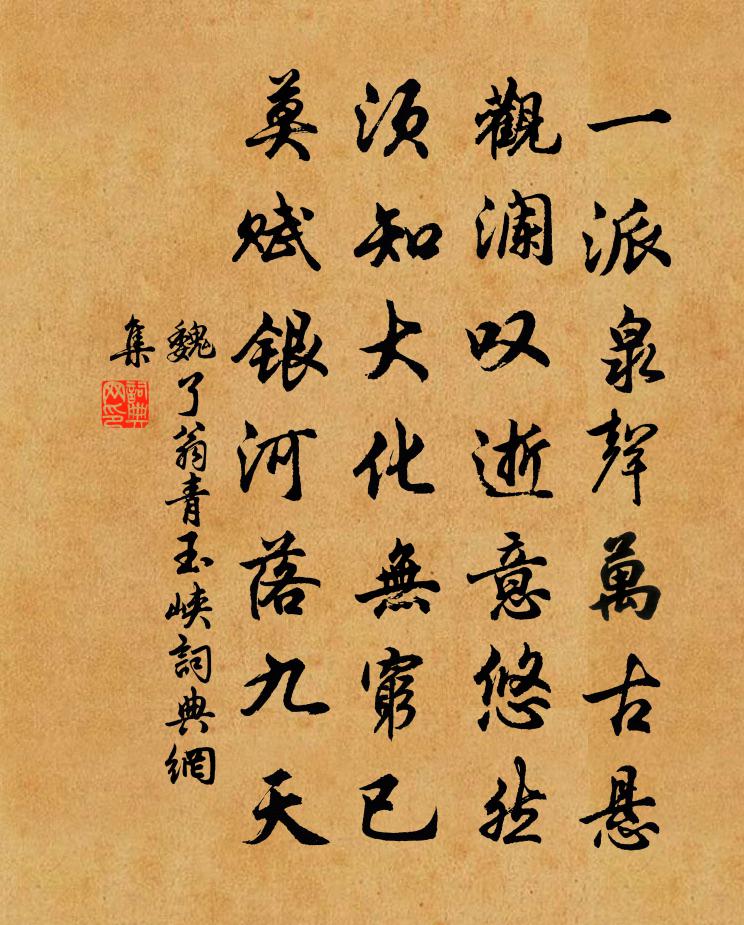 一派泉聲萬古悬
觀澜叹逝意悠然
须知大化無窮已
莫赋银河落九天
魏了翁青玉峡詞典網
集
詞典
网印